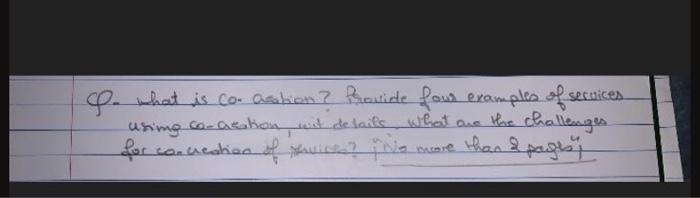 Q- what is co-creation? Provide four examples of services
using co-creation, wit details. What are the challenges
for co-creation of services? "No more than 2 pages"